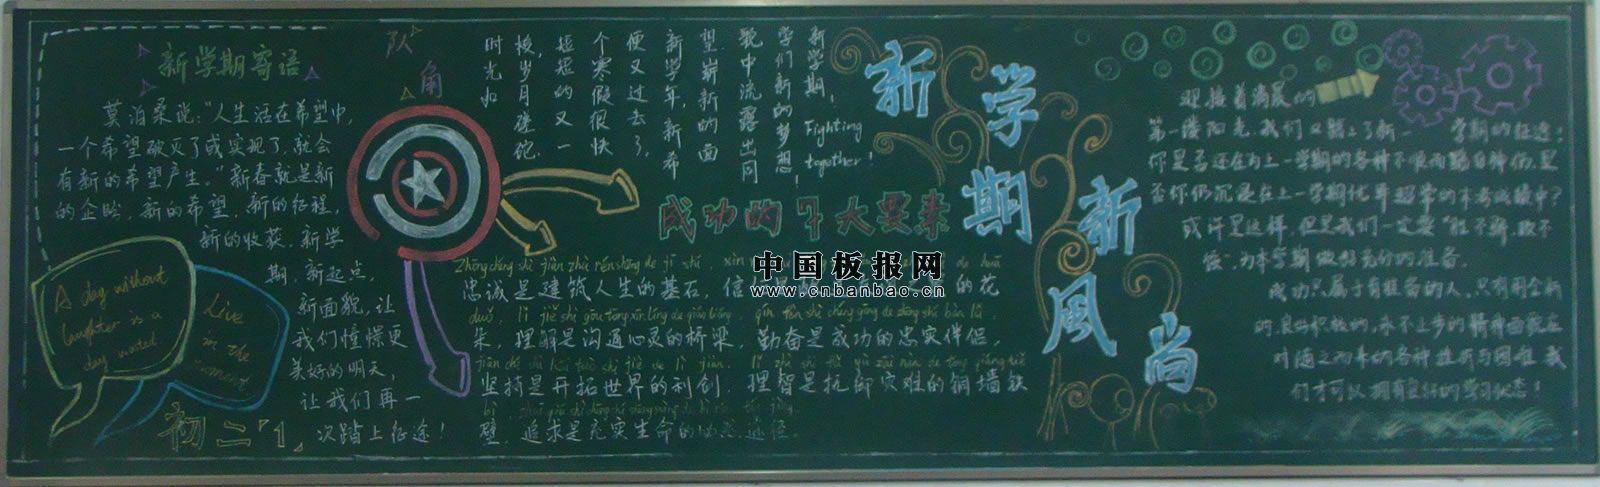 新学期寄语
莫泊桑说:"人生活在希望中,
一个希望破灭了或实现了,就会
有新的希望产生。"新春就是新
的企盼,新的希望,新的征程,
新的收获,新学
期,新起点,
新面貌,让
我们憧憬更
美好的明天,
让我们再一
次踏上征途!
A day without
laughter is a
day wasted
Live
in the
moment
初二「1」
队
角
新学期,Fighting together!
学们新的梦想,
貌中流露出同
望。崭新的面
新学年,新希
便又过去了,
个寒假很快
短短的又一
梭,岁月蹉跎。
时光如
成功的7大要素
忠诚是建筑人生的基石,信 的花
朵,理解是沟通心灵的桥梁,勤奋是成功的忠实伴侣,
坚持是开拓世界的利剑,理智是抗御灾难的铜墙铁
壁,追求是充实生命的 途径.
中国板报网
www.cnbanbao.cn
新学期新風尚
迎接着清晨的
第一缕阳光,我们又踏上了新一 学期的征途!
你是否还在为上一学期的各种不顺而黯自神伤,是
否你仍沉浸在上一学期优异 的 成绩中?
或许是这样,但是我们一定要"胜不骄,败不
馁",为本学期做好充分的准备。
成功只属于有准备的人,只有用全新
的,良好积极的,永不止步的精神面貌应
对随之而来的各种挑战与困难,我
们才可以拥有良好的学习状态!